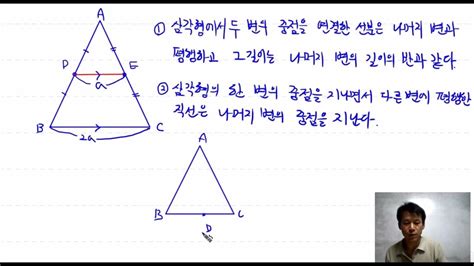 ① 삼각형에서 두 변의 중점을 연결한 선분은 나머지 변과
평행하고 그길이는 나머지 변의 길이의 반과 같다.
② 삼각형의 한 변의 중점을 지나면서 다른변에 평행한
직선은 나머지 변의 중점을 지난다.
A
D
E
a
B
C
2a
A
B
D
C